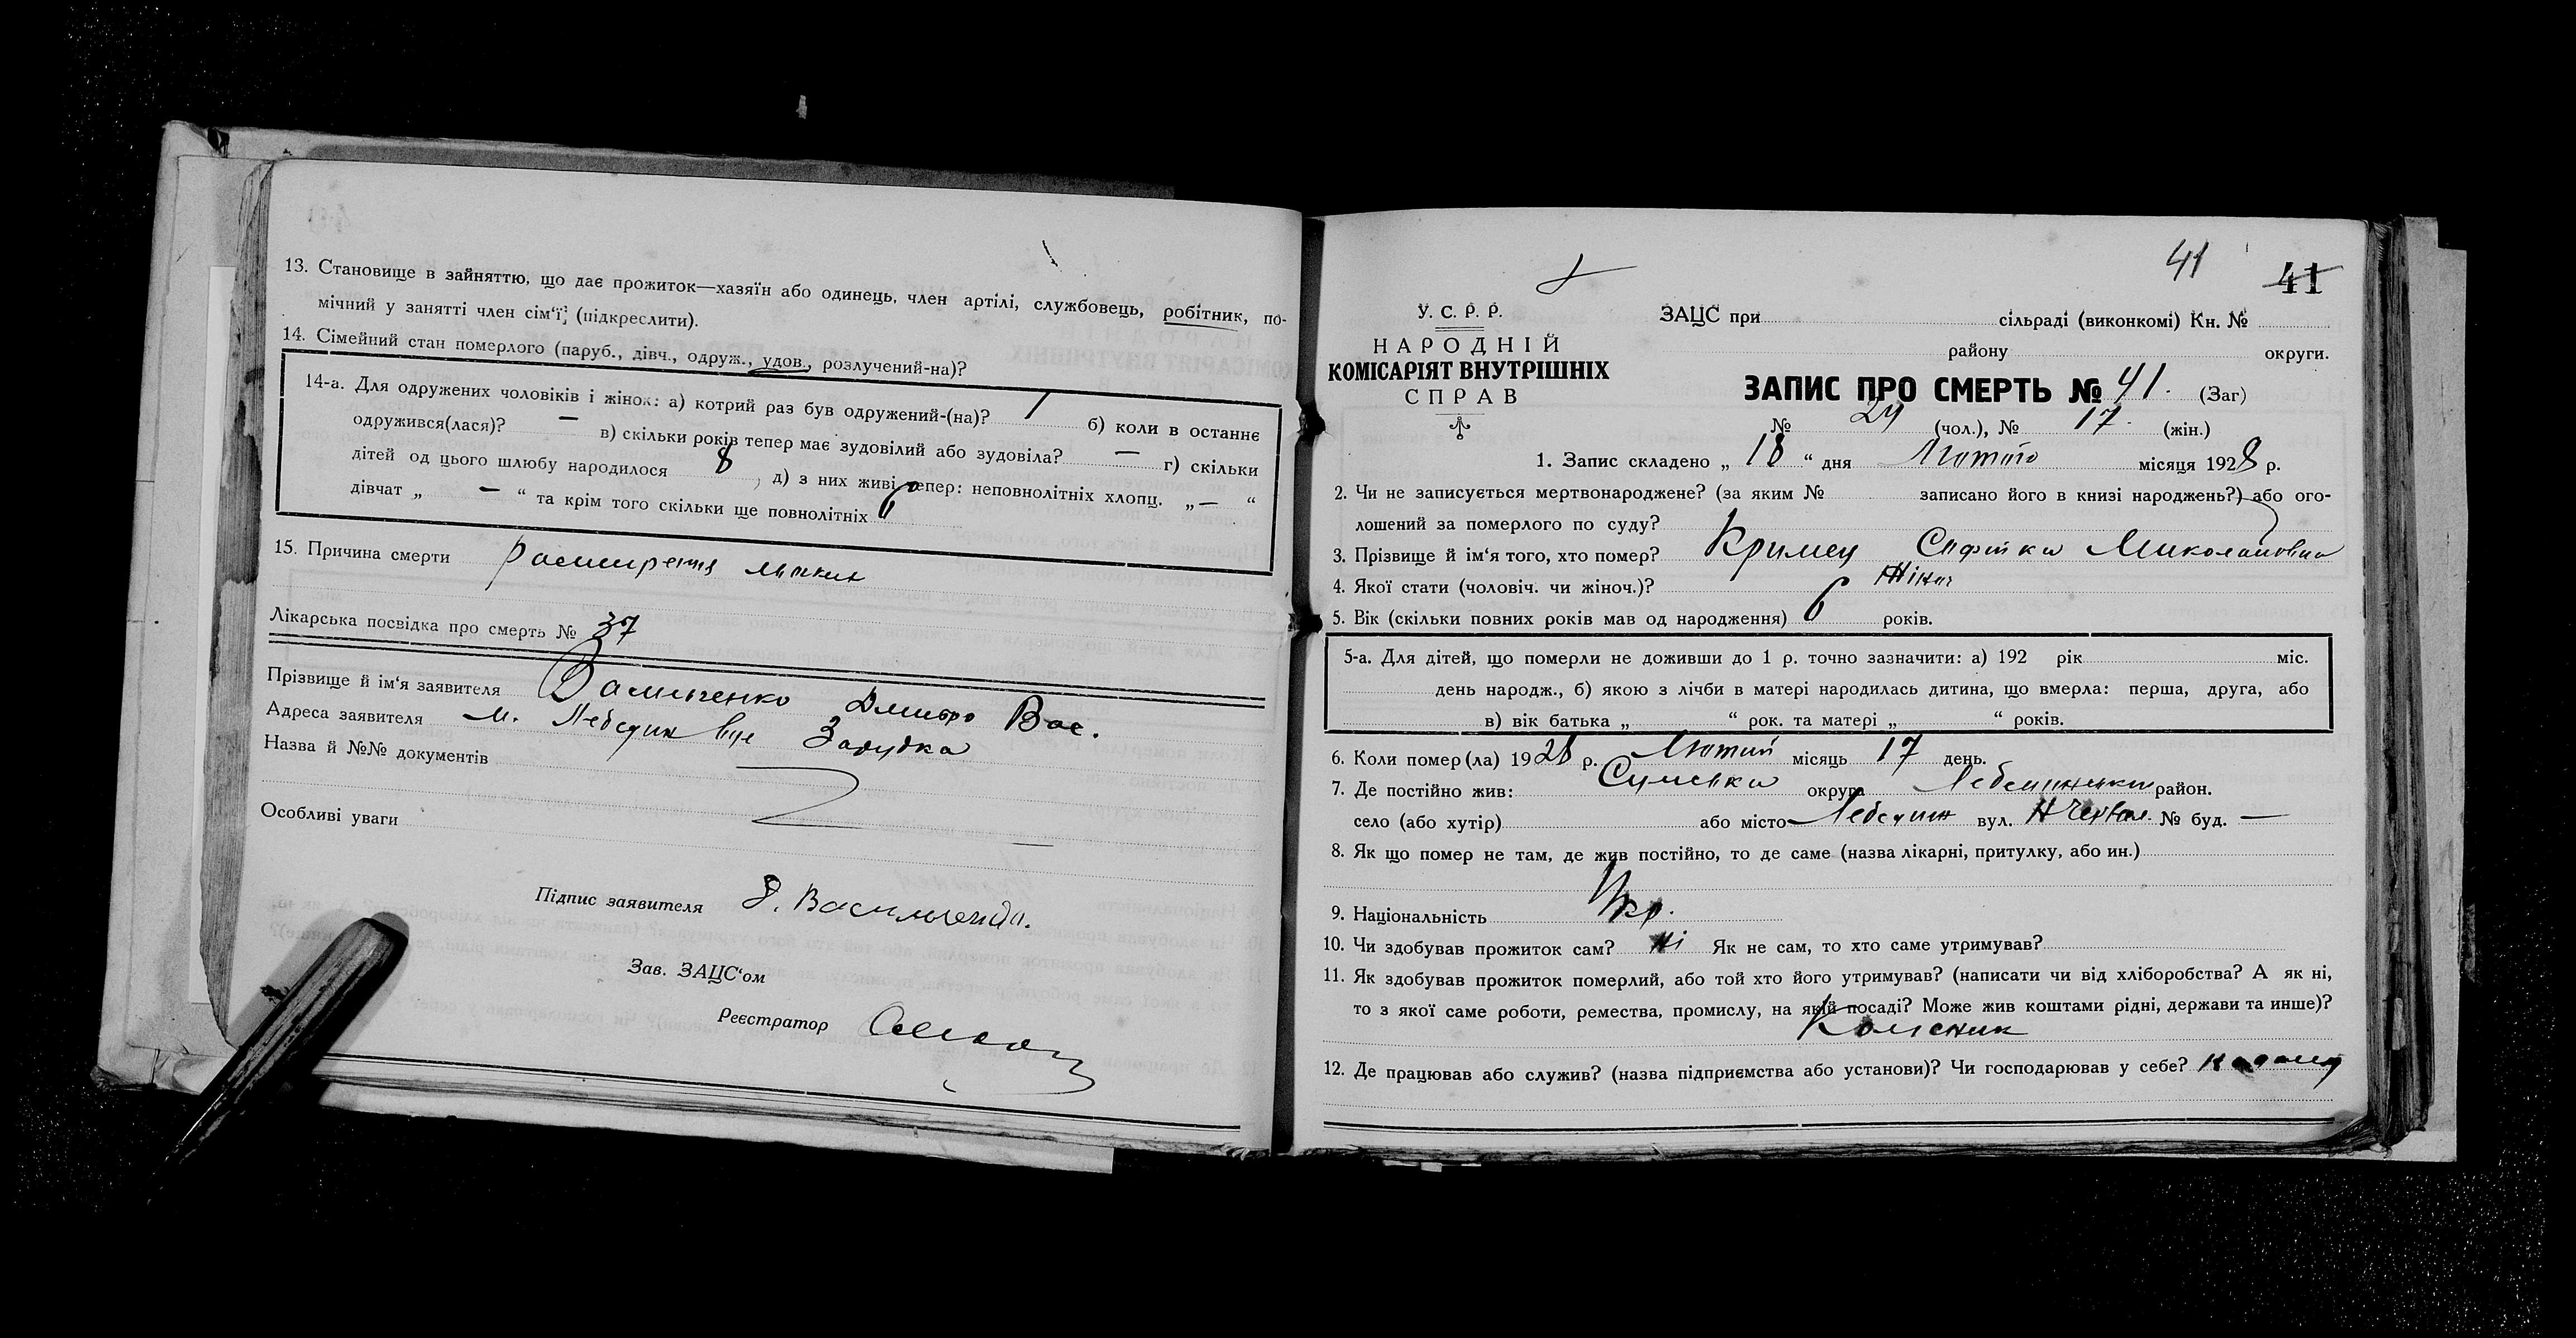 13. Становище в зайняттю, що дає прожиток—хазяїн або одинець, член артілі, службовець, робітник, по-
мічний у занятті член сім'ї; (підкреслити).
14. Сімейний стан померлого (паруб., дівч., одруж., удов., розлучений-на)?
14-а. Для одружених чоловіків і жінок: а) котрий раз був одружений-(на)? 1 б) коли в останнє
одружився(лася)? — в) скільки років тепер має зудовілий або зудовіла? — г) скільки
дітей од цього шлюбу народилося 8, д) з них живі тепер: неповнолітніх хлопц. „ — “
дівчат „ — “ та крім того скільки ще повнолітніх 6
15. Причина смерти
Лікарська посвідка про смерть № 37
Прізвище й ім'я заявителя Дмитро Вас.
Адреса заявителя м. Лебедин
Назва й №№ документів
Особливі уваги —
Підпис заявителя
Зав. ЗАЦС'ом
Реєстратор
41 41
У. С. Р. Р.
НАРОДНІЙ
КОМІСАРІЯТ ВНУТРІШНІХ
СПРАВ
ЗАЦС при сільраді (виконкомі) Кн. №
району округи.
ЗАПИС ПРО СМЕРТЬ № 41. (Заг)
№ 24 (чол.), № 17. (жін.)
1. Запис складено „ 18 “ дня Лютого місяця 1928 р.
2. Чи не записується мертвонароджене? (за яким № записано його в книзі народжень?) або ого-
лошений за померлого по суду?
3. Прізвище й ім'я того, хто помер? Кримец Миколаївна
4. Якої стати (чоловіч. чи жіноч.)? Жіноч
5. Вік (скільки повних років мав од народження) 6 років.
5-а. Для дітей, що померли не доживши до 1 р. точно зазначити: а) 192 рік міс.
день народж., б) якою з лічби в матері народилась дитина, що вмерла: перша, друга, або
в) вік батька „ “ рок. та матері „ “ років.
6. Коли помер(ла) 1928 р. Лютий місяць 17 день.
7. Де постійно жив: Сумська округа Лебединський район.
село (або хутір) або місто Лебедин вул. № буд. —
8. Як що помер не там, де жив постійно, то де саме (назва лікарні, притулку, або ин.)
9. Національність Укр.
10. Чи здобував прожиток сам? Ні Як не сам, то хто саме утримував?
11. Як здобував прожиток померлий, або той хто його утримував? (написати чи від хліборобства? А як ні,
то з якої саме роботи, ремества, промислу, на якій посаді? Може жив коштами рідні, держави та инше)?
12. Де працював або служив? (назва підприємства або установи)? Чи господарював у себе?